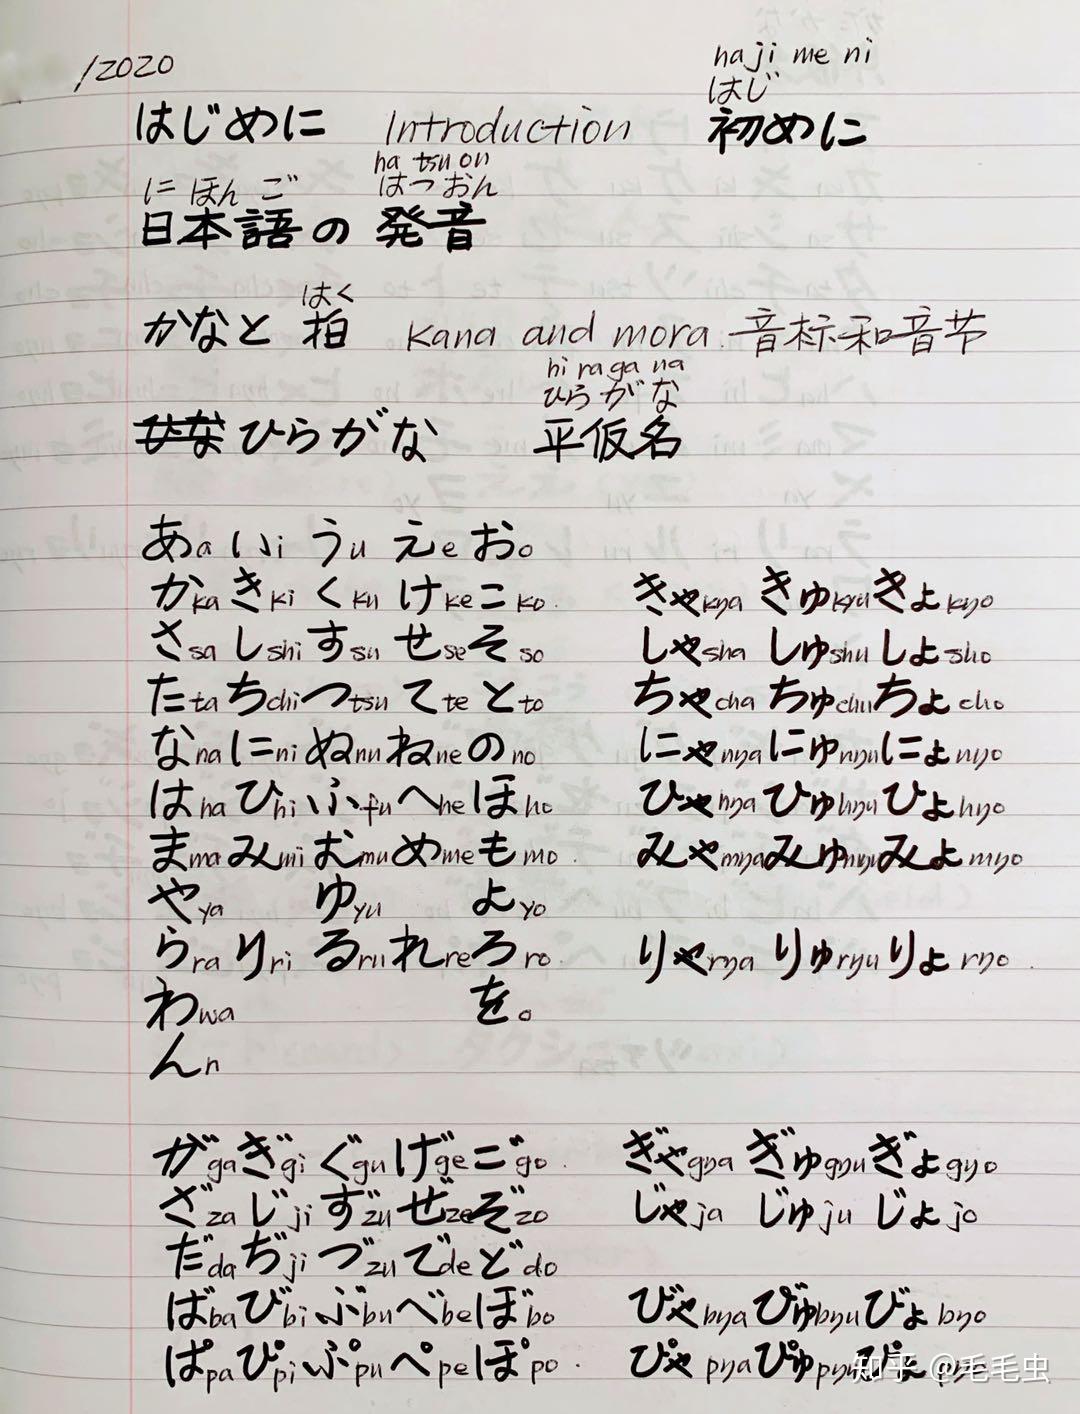 /2020
ha ji me ni
はじ
はじめに Introduction 初めに
ha tsu on
に ほん ご はつ おん
日本語の 発音
はく
かなと 拍 kana and mora. 音标和音节
hi ra ga na
ひら が な
ひな ひらがな 平仮名
あa いi うu えe おo
かka きki くku けke こko. きゃkya きゅkyu きょkyo
さsa しshi すsu せse そso しゃsha しゅshu しょsho
たta ちchi つtsu てte とto ちゃcha ちゅchu ちょcho
なna にni ぬnu ねne のno にゃnya にゅnyu にょnyo
はha ひhi ふfu へhe ほho ひゃhya ひゅhyu ひょhyo
まma みmi むmu めme もmo. みゃmya みゅmyu みょmyo
やya ゆyu よyo
らra りri るru れre ろro. りゃrya りゅryu りょryo.
わwa をo
んn
がga ぎgi ぐgu げge ごgo. ぎゃgya ぎゅgyu ぎょgyo
ざza じji ずzu ぜze ぞzo じゃja じゅju じょjo
だda ぢji づzu でde どdo
ばba びbi ぶbu べbe ぼbo びゃbya びゅbyu びょbyo
ぱpa ぴpi ぷpu ぺpe ぽpo. ぴゃpya ぴゅpyu ぴょpyo
知乎 @毛毛虫